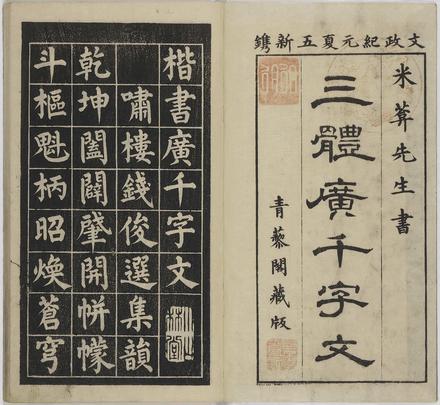 文政紀元夏五新鐫
米葊先生書
三體廣千字文
青藜閣藏版
楷書廣千字文
嘯樓錢俊選集韻
乾坤闔闢肇開帡幪
斗樞魁柄昭煥蒼穹